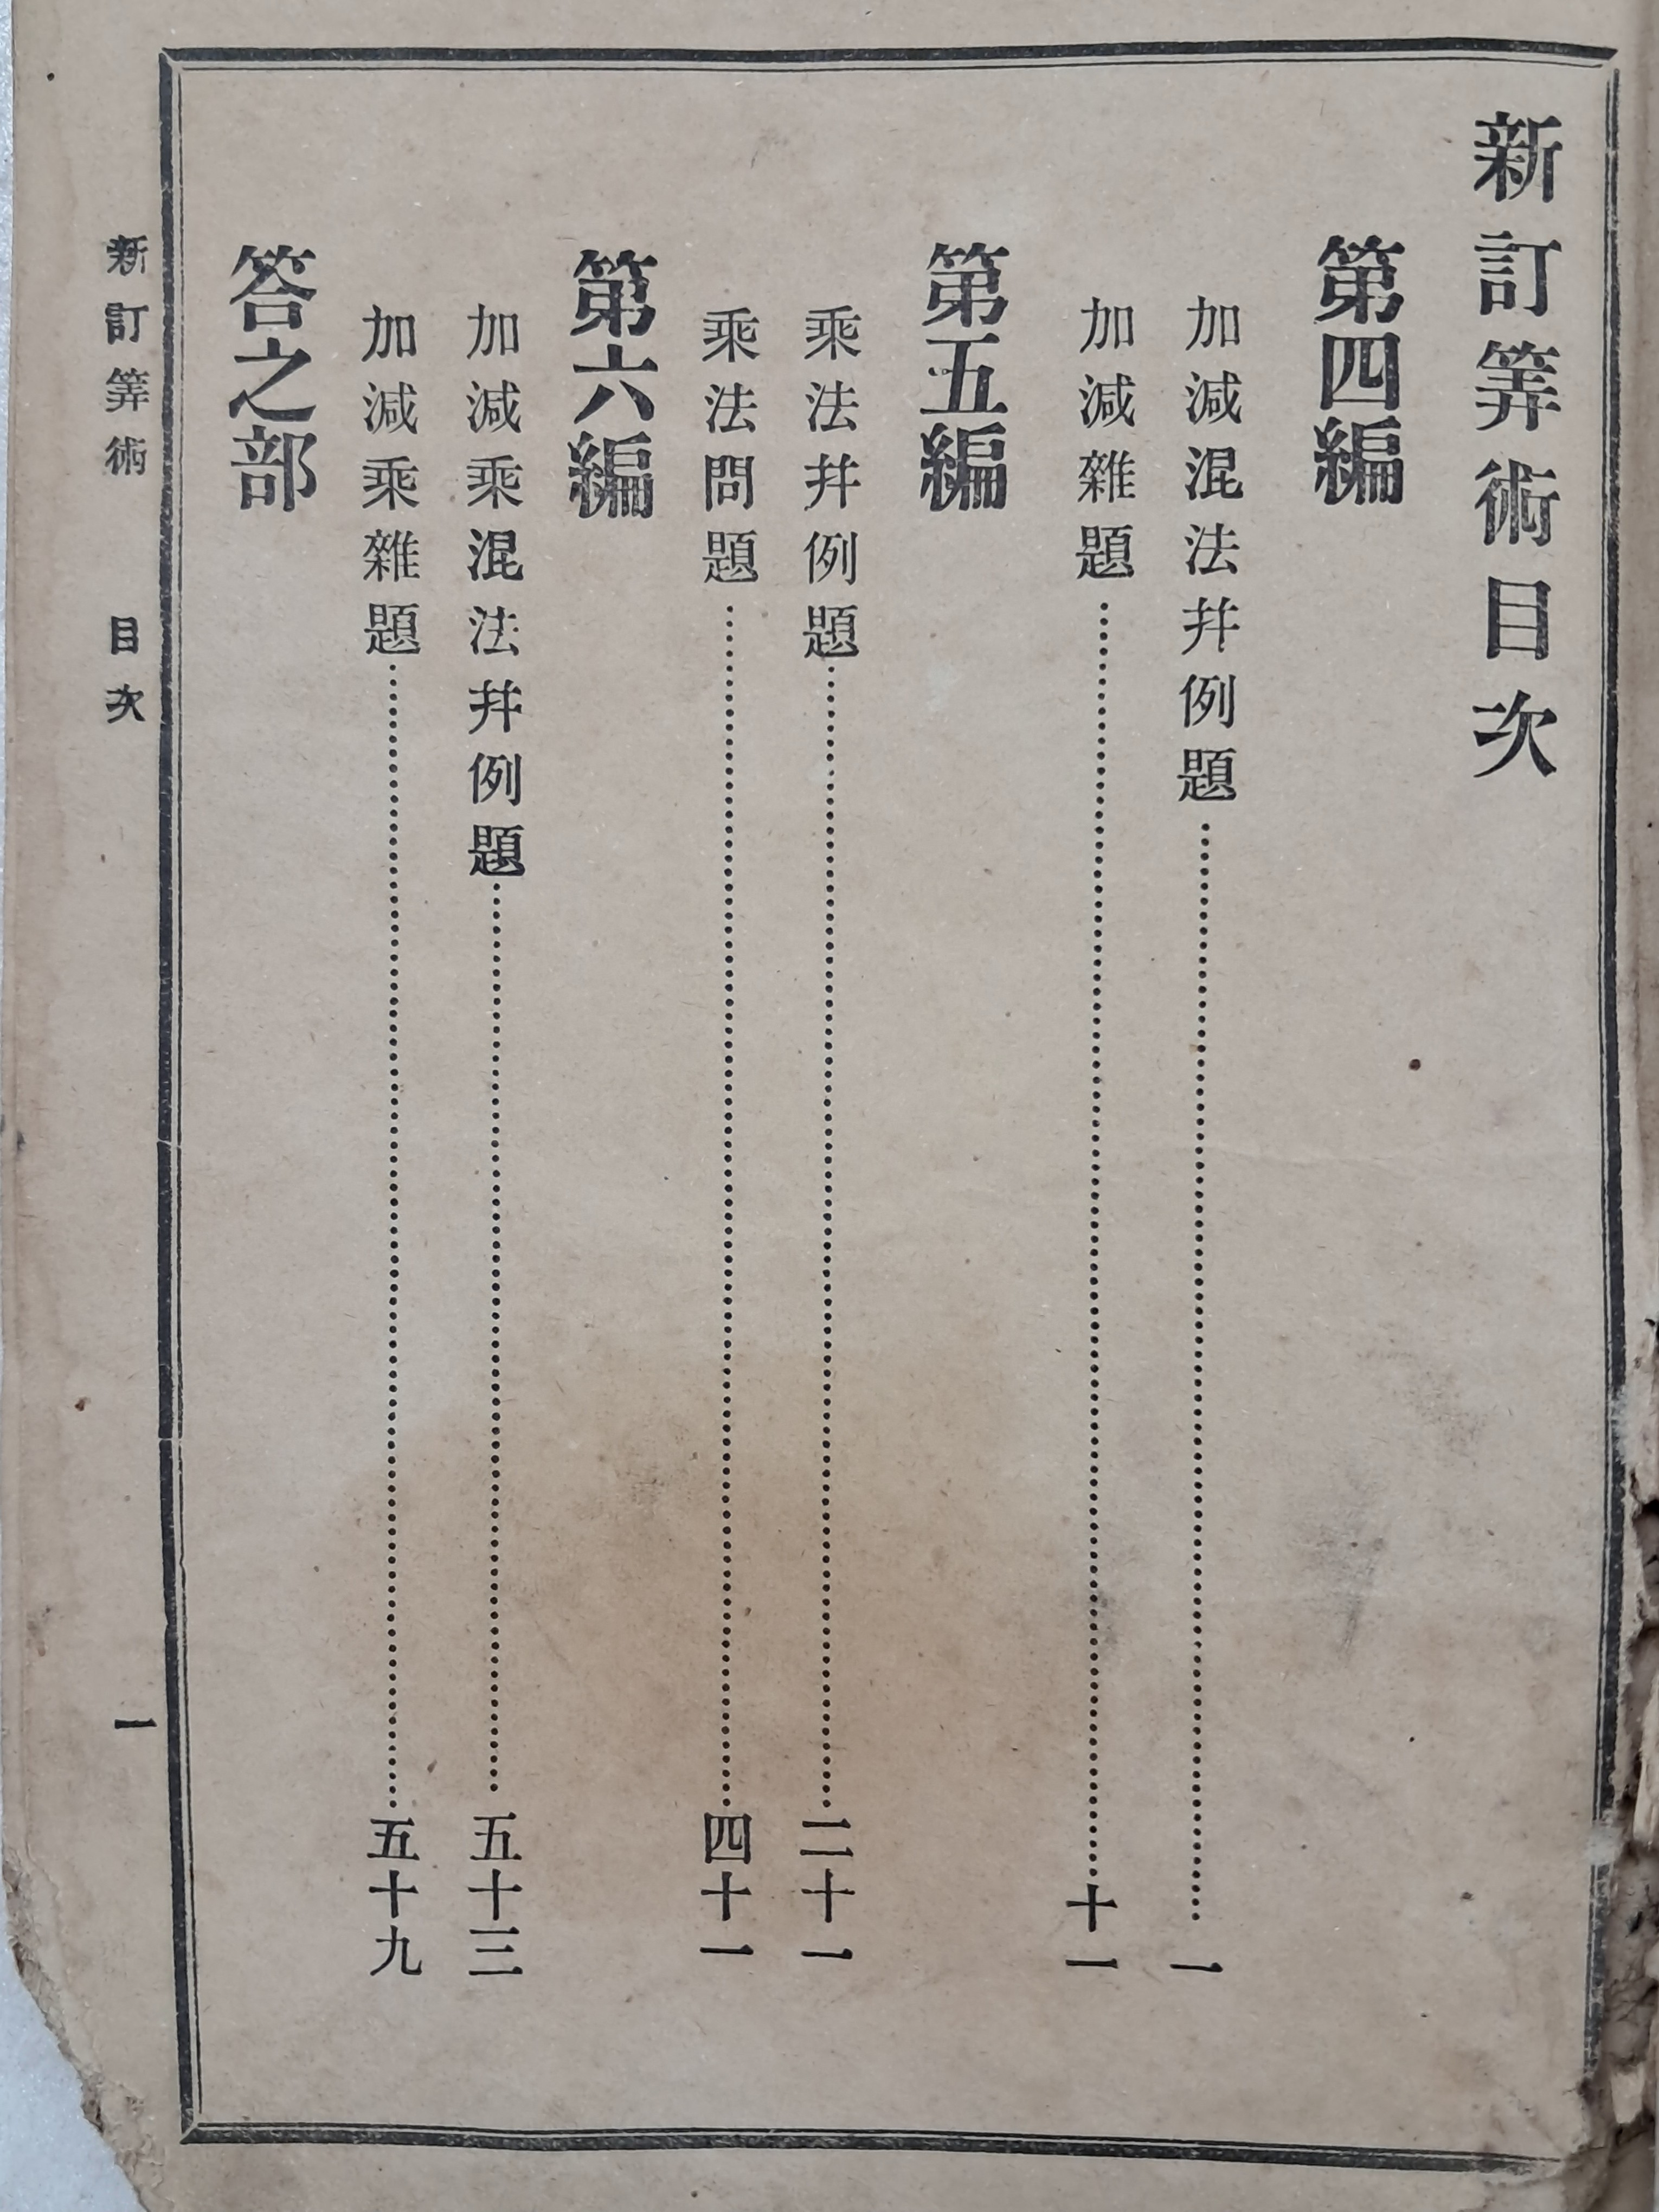 新訂筭術目次
第四編
加減混法并例題……一
加減雜題……十一
第五編
乘法并例題……二十一
乘法問題……四十一
第六編
加減乘混法并例題……五十三
加減乘雜題……五十九
答之部
新訂筭術 目次 一